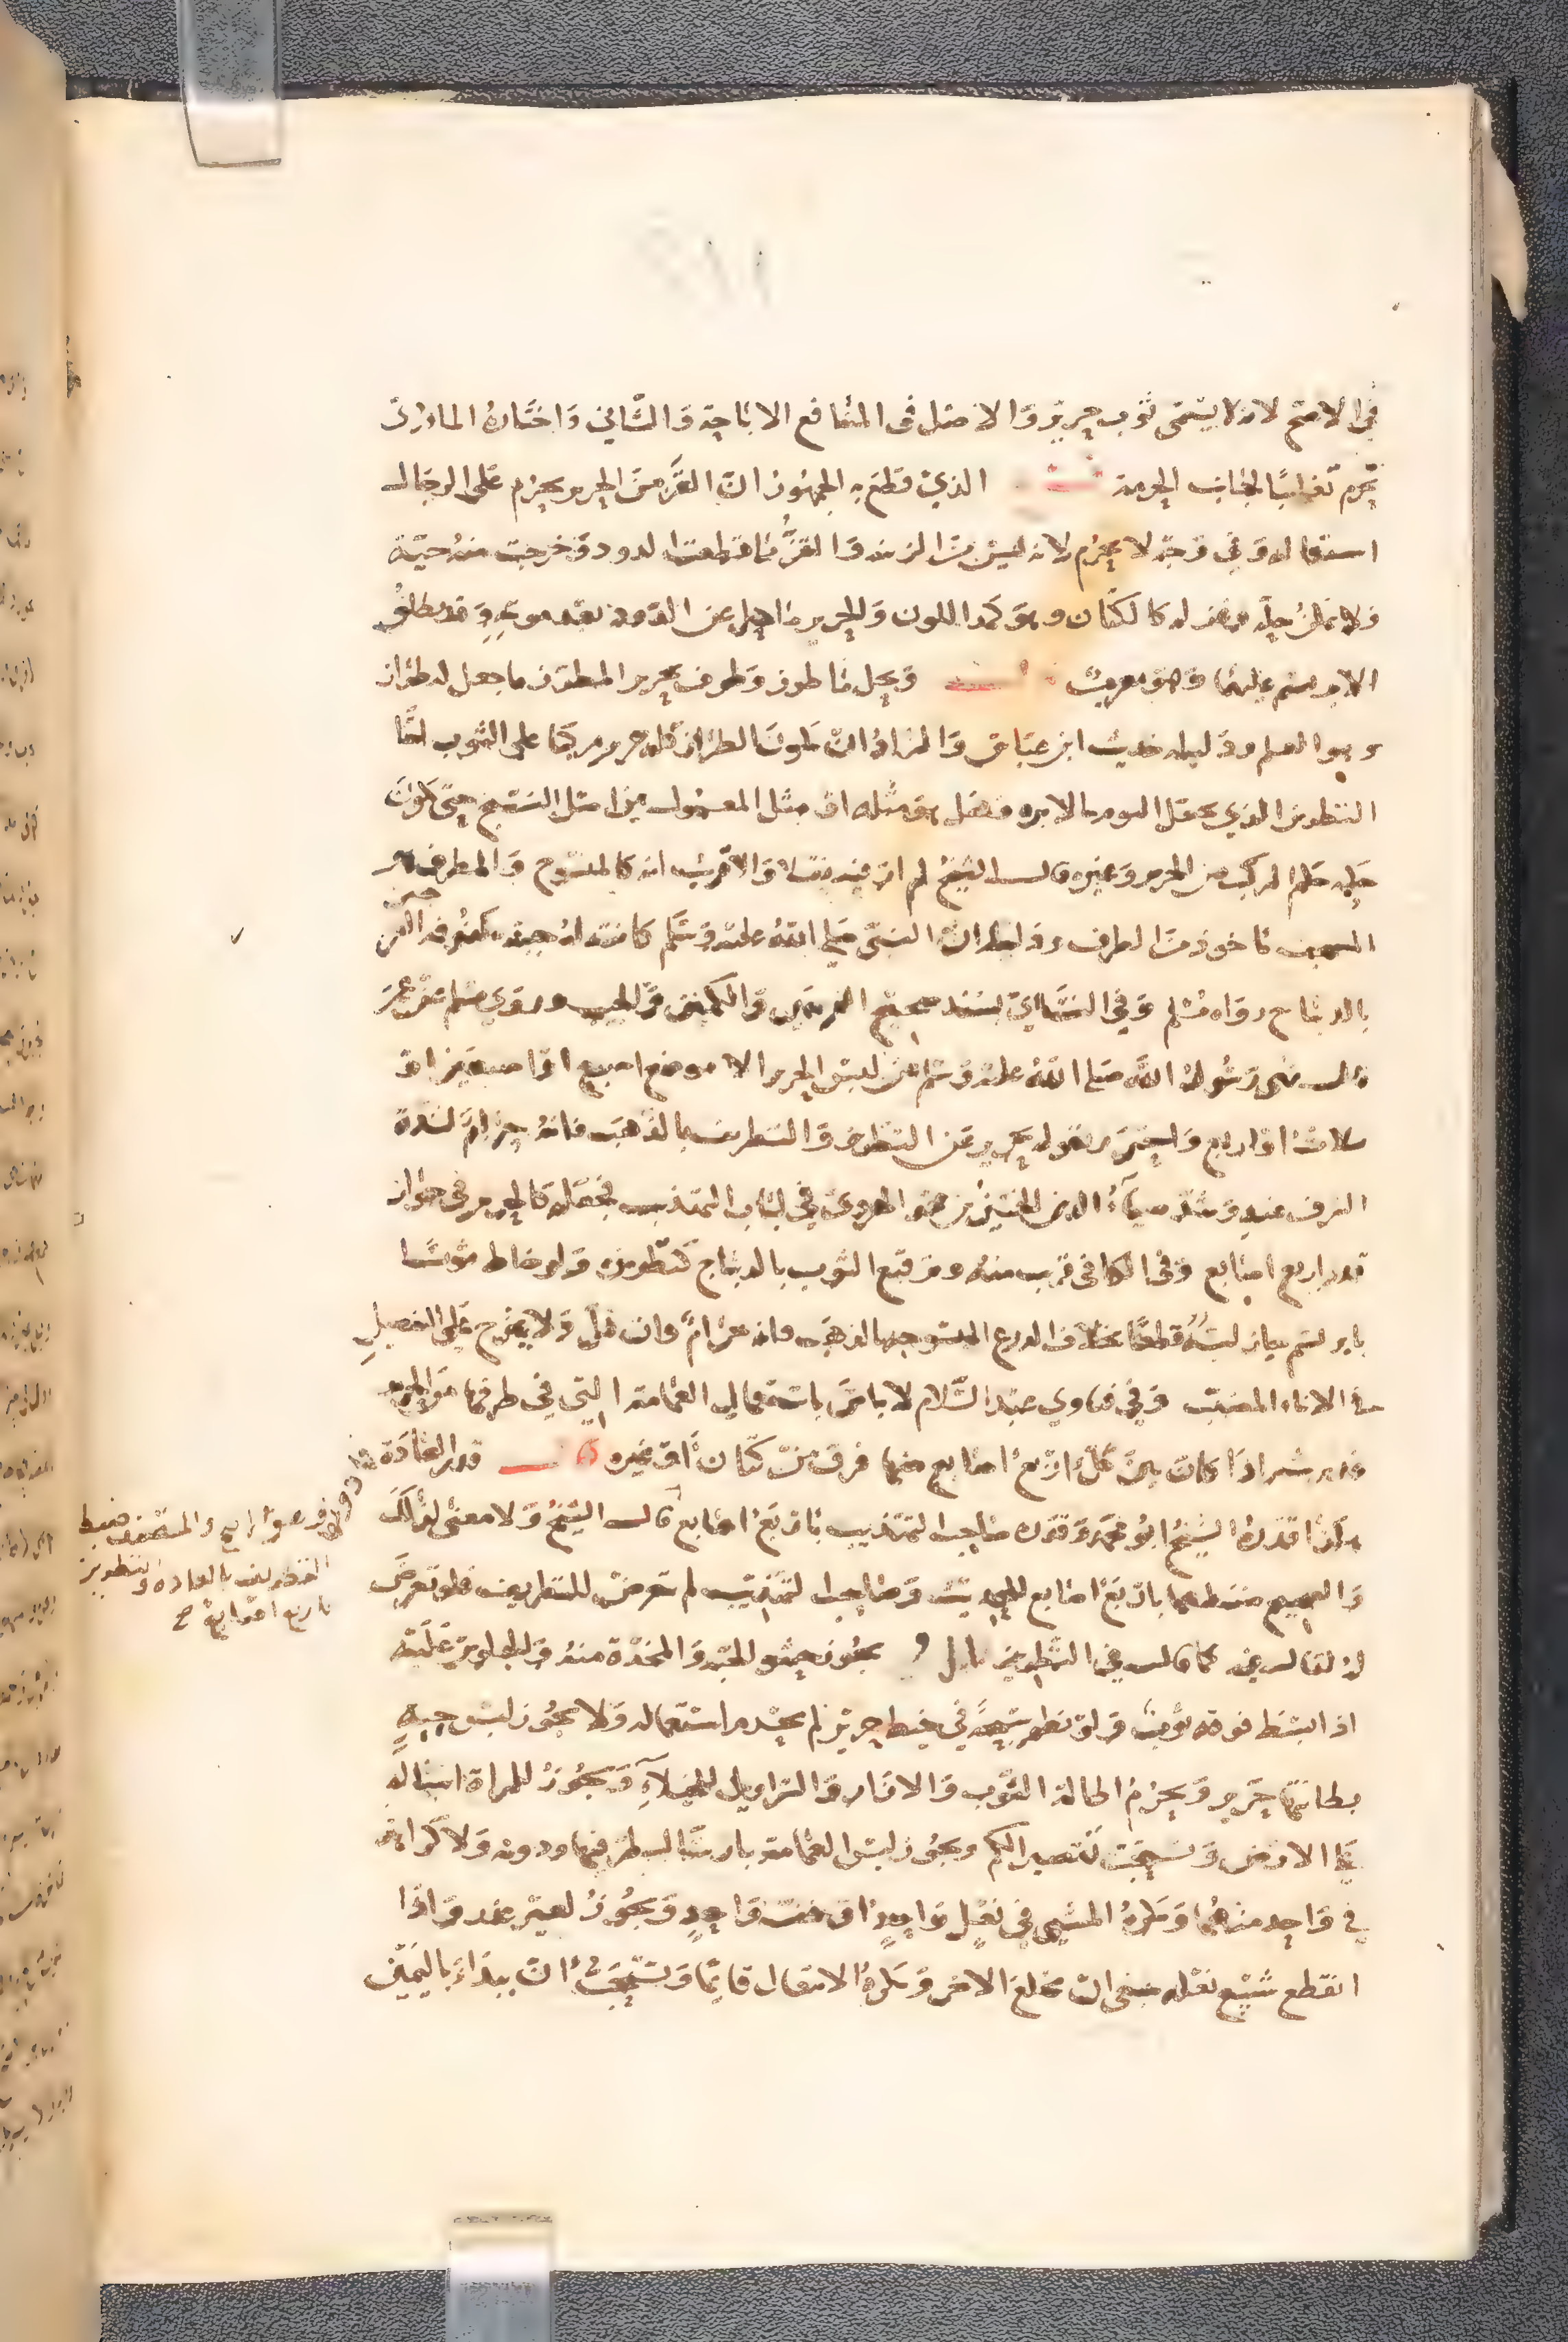 في الاصح لانه لا يسمى ثوب حرير والاصل في المنافع الاباحة والثاني واختاره الماوردي
يحرم تغليبا لجانب الحرمة الذي قطع به الجمهور ان القز من الحرير يحرم على الرجال
استعماله وفي وجه لا يحرم لانه ليس من الزينة والقز ما قطعته الدودة وخرجت منه حية
ولا يمكن حله وغزله كالكتان وهو كمد اللون والحرير ما احل عن الدود بعد موته وقد يطلق
الابريسم عليهما وهو معرب ويحل ما طرز وطرف بحرير المطرز ما جعل له طراز
وهو العلم ودليله حديث ابن عباس والمراد ان يكون الطراز كله حرير مركبا على الثوب اما
التطريز الذي يعمل اليوم بالابره فهل هو مثله او مثل المعمول من اصل النسج حتى يكون
حكمه حكم المركب من الحرير وغيره قال الشيخ لم ار فيه نقلا والاقرب انه كالمنسوج والمطرف هو
المسجف ماخوذ من الطرف ودليله ان النبي صلى الله عليه وسلم كانت له جبة مكفوفة
بالديباج رواه مسلم وفي النسائي بسند صحيح الفرجين والكمين والجيب وروي مسلم عن عمر
قال نهى رسول الله صلى الله عليه وسلم عن لبس الحرير الا موضع اصبع او اصبعين او
ثلاث او اربع واحترز بقوله بحرير عن التطريز والتطريف بالذهب فانه حرام لشدة
السرف فيه وشذ ضياء الدين الحسين من الهروي في لباب التهذيب فجعله كالحرير في جواز
قدر اربع اصابع وفي الكافي قريب منه وترقيع الثوب بالديباج كتطريزه ولو خاط ثوبا
بابريسم جاز لبسه قطعا بخلاف الدرع المنسوج بالذهب فانه حرام وان قل ولا يخرج على التفصيل
في الاناء المضبب وفي فتاوي عبد السلام لا باس باستعمال العمامة التي في طرفها حرير
قدر شبر اذا كان بين كل اربع اصابع منها فرق من كتان او غيره قال قدر العادة
هكذا قدره الشيخ ابو محمد وقدره صاحب التهذيب باربع اصابع قال الشيخ ولا معنى لذلك
والصحيح ضبطها باربع اصابع للحديث وصاحب التهذيب لم يتعرض للتطريف فلو تعرض
له لقال فيه كما قال في التطريز يجوز حشو الجبة والمخدة منه والجلوس عليه
اذا بسط فوقه ثوب ولو نظم سبحة في خيط حرير لم يحرم استعماله ولا يجوز لبس جبة
بطانتها حرير ويحرم اطالة الثوب والازار والسراويل للخيلاء ويجوز للمراة اسباله
على الارض ويستحب تقصير الكم ويجوز لبس العمامة بارسال طرفها ودونه ولا كراهة
في واحد منهما ويكره المشي في نعل واحد او خف واحد ويجوز لغير عذر واذا
انقطع شسع نعله فينبغي ان يخلع الاخر ويكره الانتعال قائما ويستحب ان يبدا باليمين
باربع اصابع